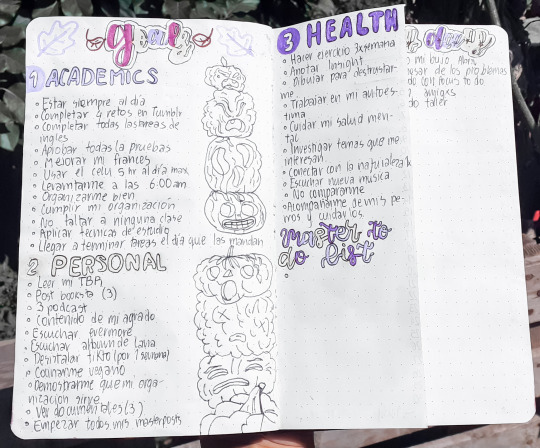 goals
1 ACADEMICS
Estar siempre al día
Completar 4 retos en Tumblr
Completar todas las tareas de
ingles
Aprobar todas la pruebas
Mejorar mi frances
Usar el celu 5 hr al día max
Levantarme a las 6:00 am
Organizarme bien
Cumplir mi organización
No faltar a ninguna clase
Aplicar tecnicas de estudio
Llegar a terminar tareas el día que las mandan
2 PERSONAL
Leer mi TBR
Post books (3)
3 podcast
Contenido de mi agrado
Escuchar evermore
Escuchar album de Lana
Desistalar tikto (por 1 semana)
Cocinarme vegano
Demostrarme que mi orga-
nización sirve
Ver documentales (3)
Empezar todos mis masterposts
3 HEALTH
Hacer ejercicio 3xsemana
Anotar Insight
Dibujar para destrestar-
me
Trabajar en mi autoes-
tima
Cuidar mi salud men-
tal
Investigar temas que me
interesan
Conectar con la naturaleza
Escuchar nueva música
No compararme
Acompañarme de mis pe-
rros y cuidarlos
Master to
do list
mi bujo
de los problemas
do taller